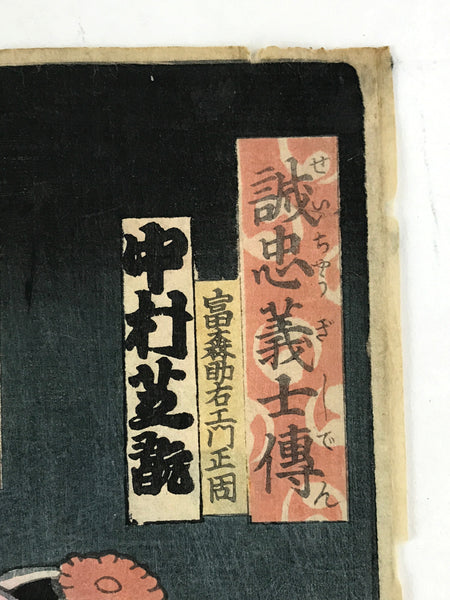 誠忠義士傳
せいちうぎしでん
富森助右エ門正固
中村芝翫